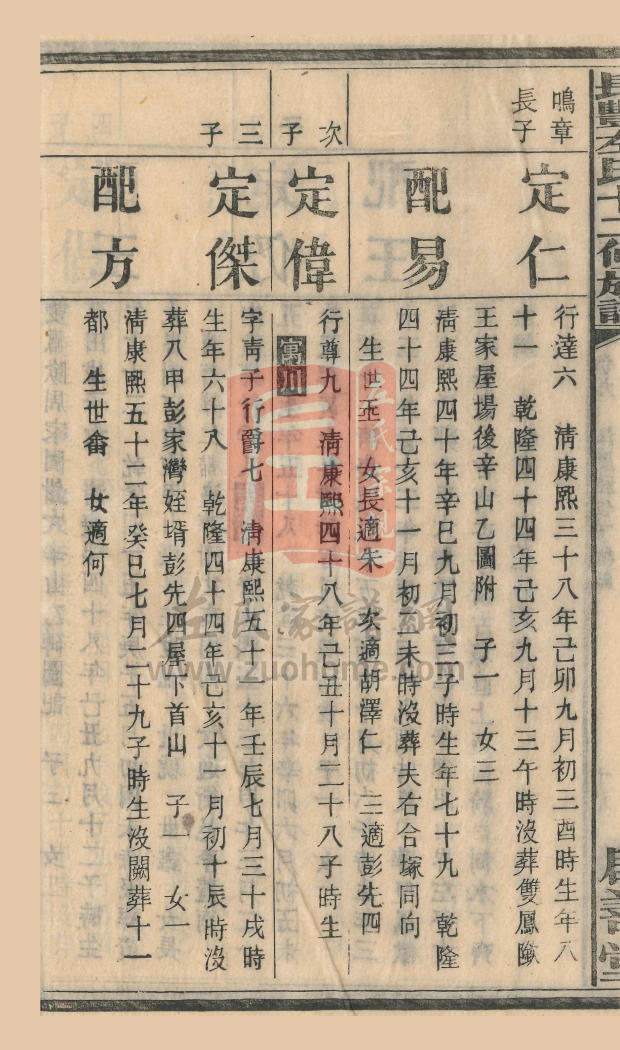 鳴章
長子
定仁
行達六 清康熙三十八年己卯九月初三酉時生年八
十一 乾隆四十四年己亥九月十三午時沒葬雙鳳
王家屋場後辛山乙圖附 子一 女三
配易
清康熙四十年辛巳九月初三子時生年七十九 乾隆
四十四年己亥十一月初五未時沒葬夫右合塚同向
生世丕 女長適朱 次適胡澤仁 三適彭先四
次子
定偉
行尊九 清康熙四十八年己丑十月二十八子時生
寓川
三子
定傑
字靑子行爵七 清康熙五十一年壬辰七月三十戌時
生年六十八 乾隆四十四年己亥十一月初十辰時沒
葬八甲彭家灣姪壻彭先四屋下首山 子一 女一
配方
清康熙五十二年癸巳七月二十九子時生沒闕葬十一
都 生世畨 女適何
左氏家譜網
www.zuohome.com